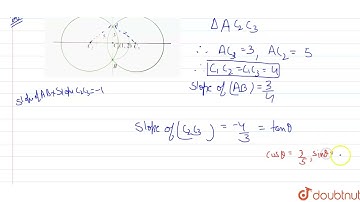 Δ AC₂C₃
∴ AC₁ = 3, AC₂ = 5
∴ C₁C₂ = C₁C₃ = 4
slope of (AB) = 3/4
slope of AB × slope C₂C₃ = -1
slope of (C₂C₃) = -4/3 = tanθ
cosθ = 3/5, sinθ =
doubtnut